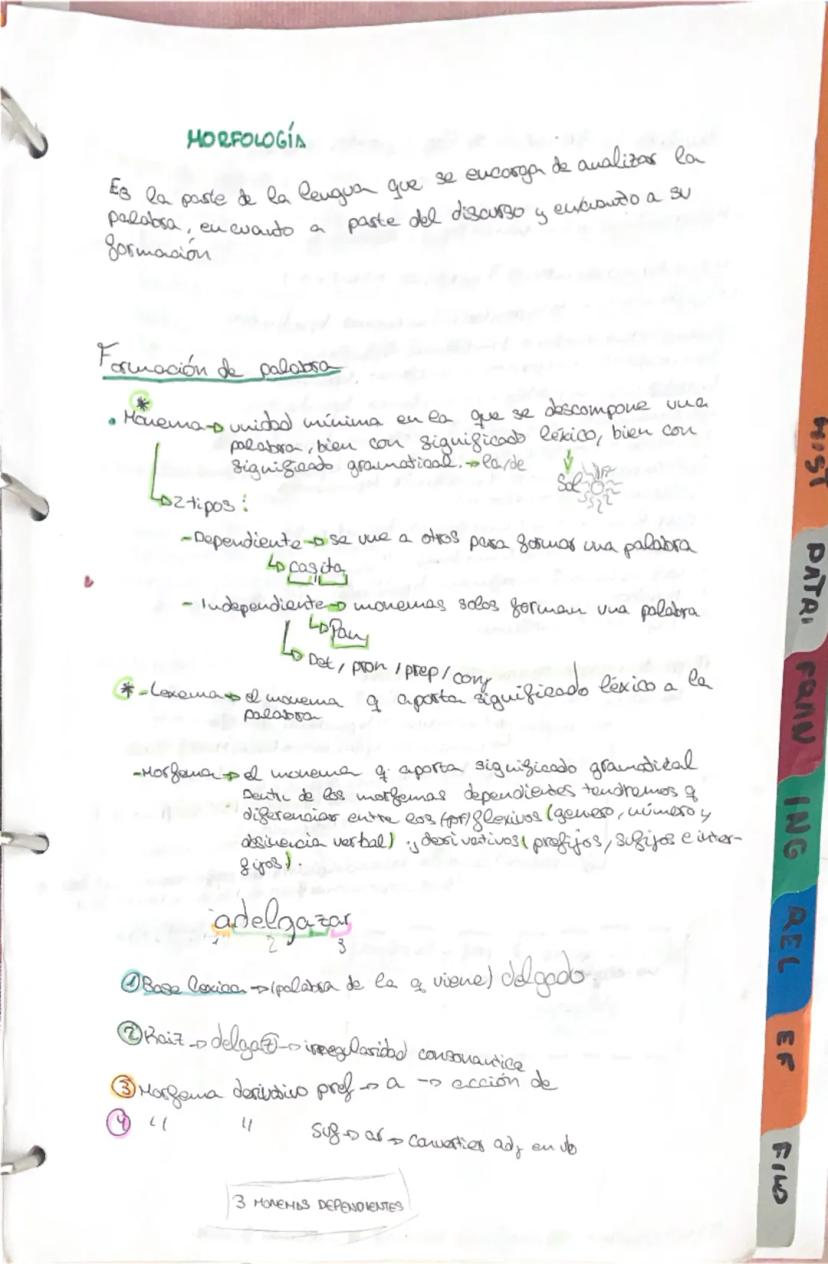 MORFOLOGÍA
Es la parte de la lengua que se encarga de analizar la
palabra, en cuanto a parte del discurso y encuanto a su
formación
Formación de palabra
*
• Monema → unidad mínima en la que se descompone una
palabra, bien con significado léxico, bien con
significado gramatical. → la/de
Sol
→ 2 tipos:
- Dependiente → se une a otros para formar una palabra
↳ casita
- Independiente → monemas solos forman una palabra
↳ Pan
↳ Det / pron / prep / conj
* - Lexema → el monema q aporta significado léxico a la
palabra
- Morfema → el monema q aporta significado gramatical
Dentr de los morfemas dependientes tendremos q
diferenciar entre los flexivos (genero, número y
desinencia verbal) y derivativos (prefijos, sufijos e inter-
fijos).
adelgazar
1 2 3
① Base lexica → (palabra de la q viene) delgado
② Raiz → delgaz → irregularidad consonantica
③ Morfema derivativo pref → a → acción de
④ " " Suf → ar → convertier adj en vb
3 MONEMAS DEPENDIENTES
HIST
PATRI
FRAN
ING
REL
EF